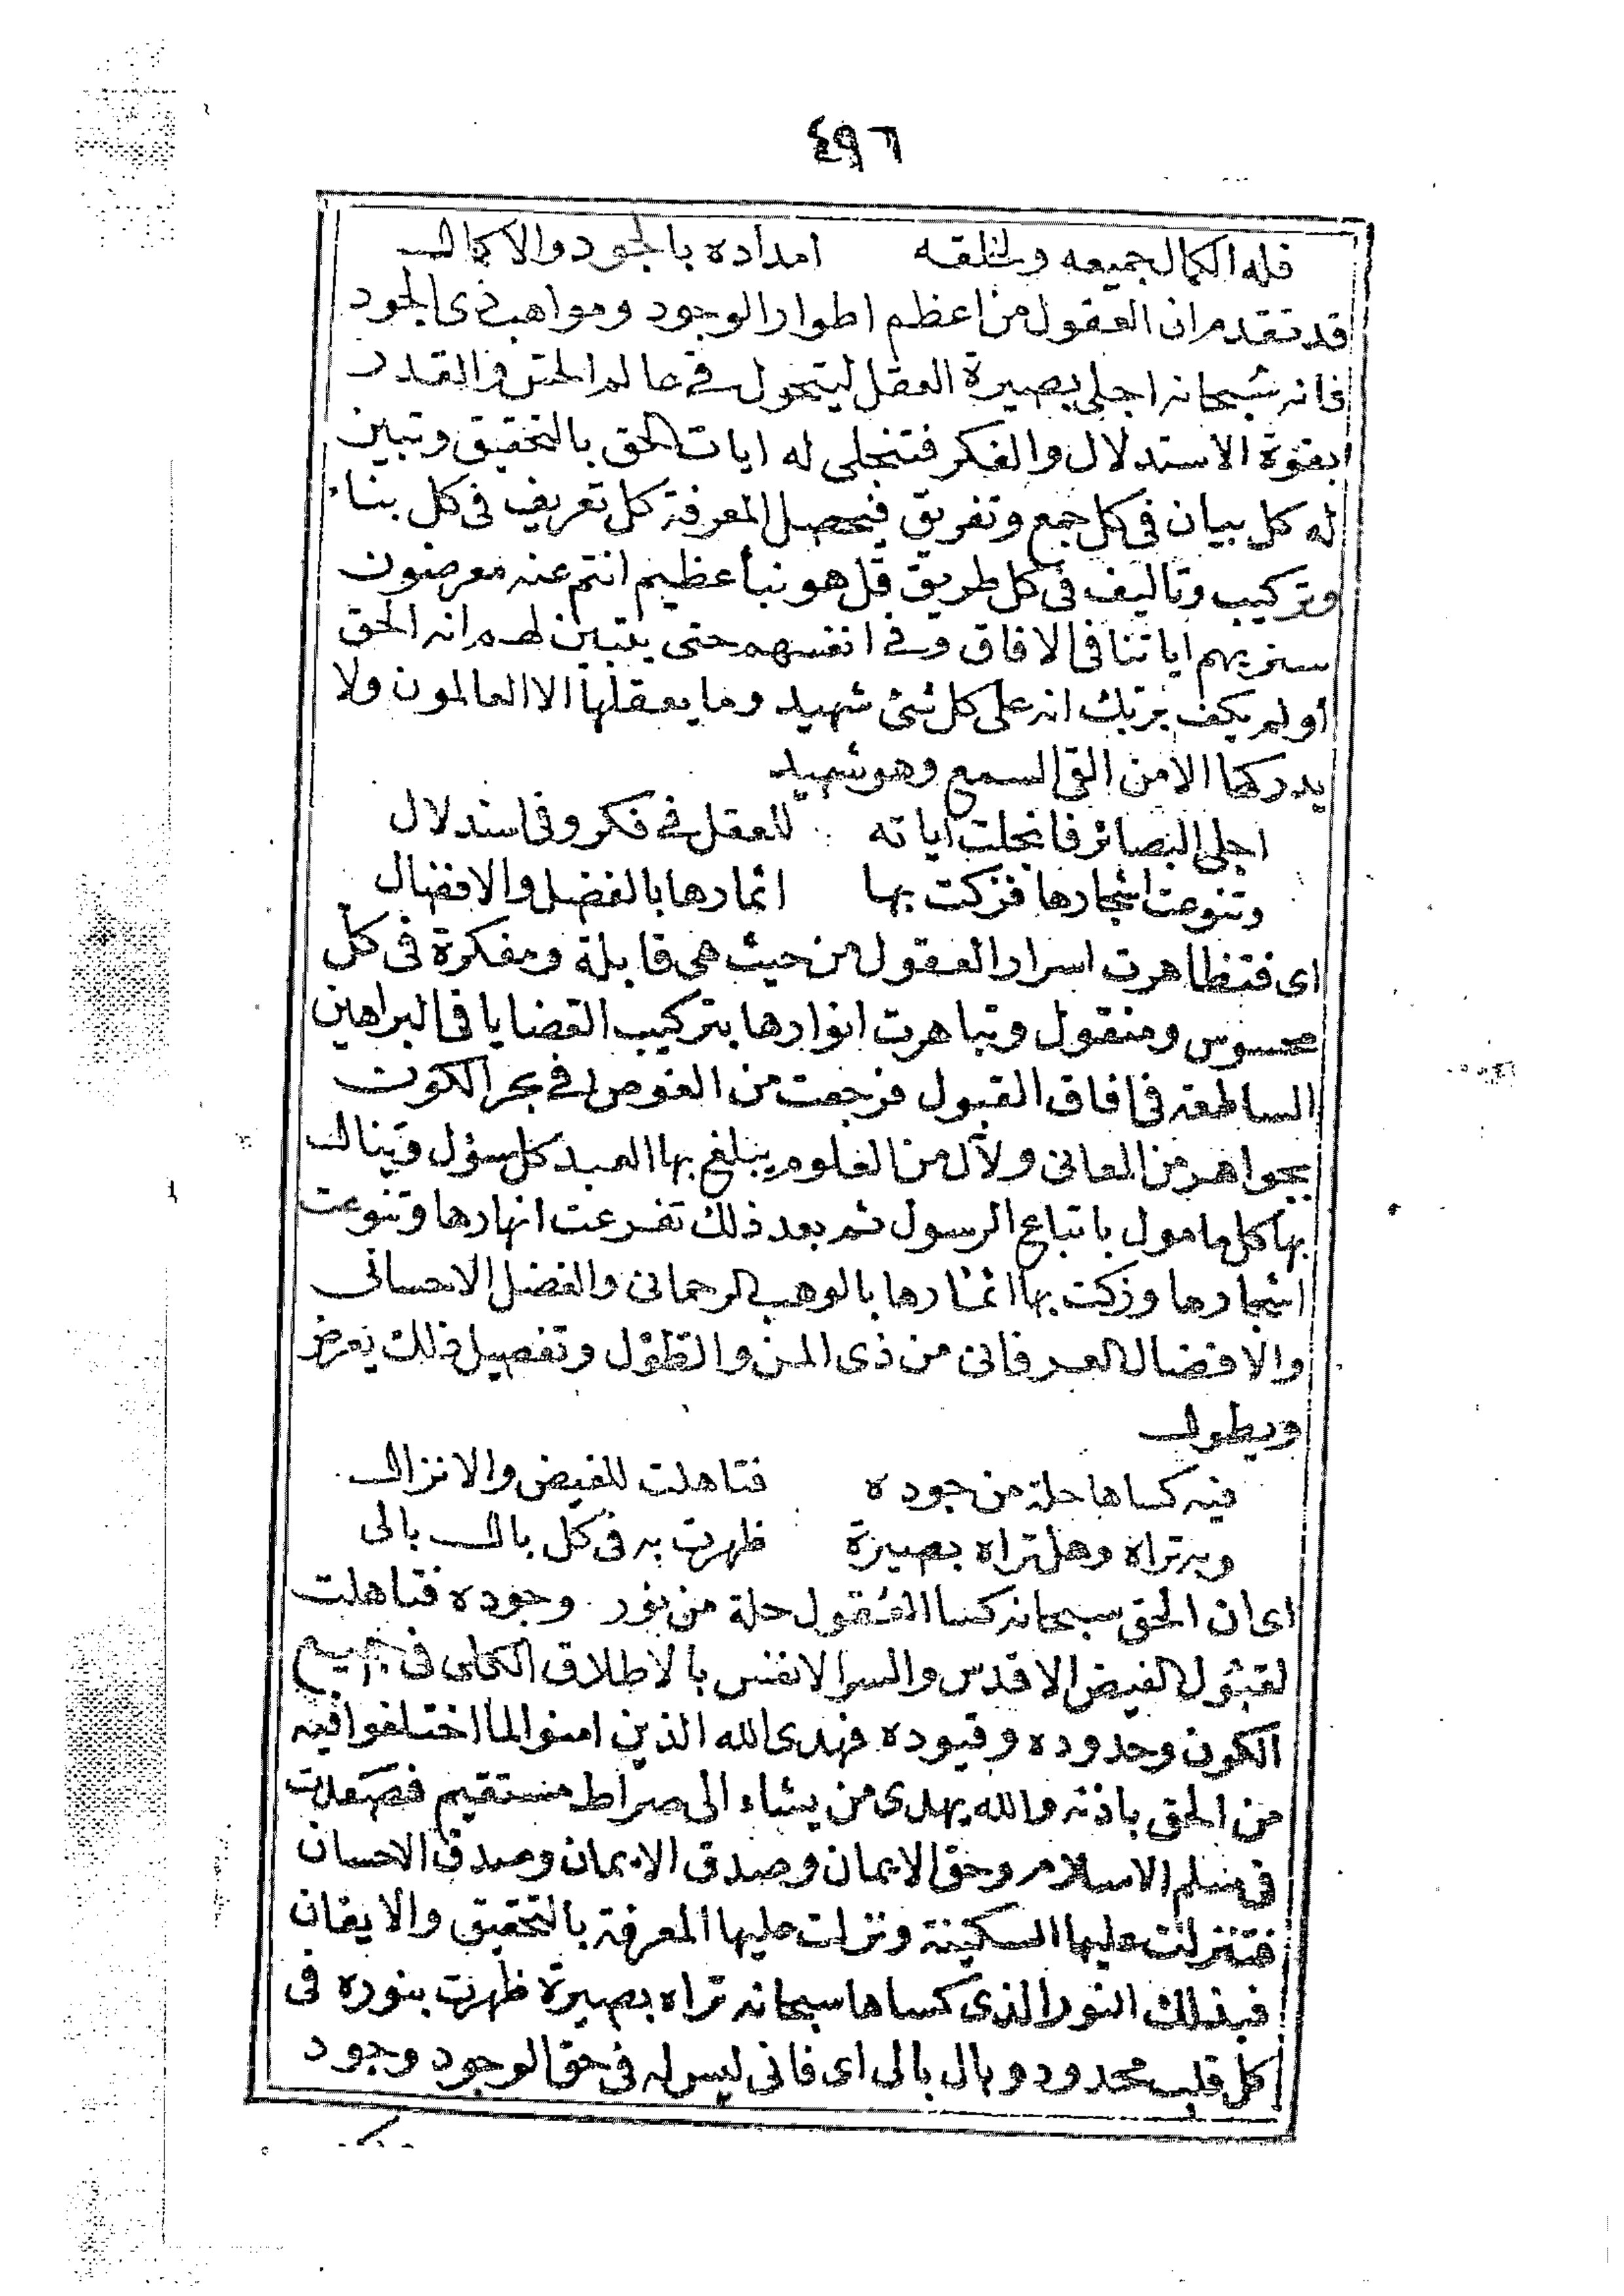 ٤٩٦
فله الكمال جميعه ولخلقه امداده بالجود والاكمال
قد تقدم ان العقول من اعظم اطوار الوجود ومواهب ذى الجود
فانه سبحانه اجلى بصيرة العقل ليتجول فى عالم الحس والقدر
بقوة الاستدلال والفكر فتنجلى له ايات الحق بالتحقيق وتبين
له كل بيان فى كل جمع وتفريق فيحصل المعرفة كل تعريف فى كل بناء
وتركيب وتاليف فى كل طريق قل هو نبأ عظيم انتم عنه معرضون
سنريهم اياتنا فى الافاق وفى انفسهم حتى يتبين لهم انه الحق
أولم يكف بربك انه على كل شئ شهيد وما يعقلها الا العالمون ولا
يدركها الا من القى السمع وهو شهيد
اجلى البصائر فانجلت اياته للعقل فى فكر وفى استدلال
وتنوعت اشجارها فزكت بها اثمارها بالفضل والافضال
اى فتظاهرت اسرار العقول من حيث هى قابلة ومفكرة فى كل
محسوس ومنقول وتباهرت انوارها بتركيب القضايا فى البراهين
الساطعة فى افاق القبول فرجعت من الغوص فى بحر الكون
بجواهر من المعانى ولآل من العلوم يبلغ بها العبد كل سؤل وينال
بها كل مامول باتباع الرسول ثم بعد ذلك تفرعت انهارها وتنوعت
اشجارها وزكت بها اثمارها بالوهب الرحمانى والفضل الاحسانى
والافضال العرفانى من ذى المن والتطول وتفصيل ذلك يعرض
ويطول
فيه كساها حلة من جوده فتاهلت للفيض والانزال
وبه تراه وهل تراه بصيرة ظهرت به فى كل بال بالى
اى ان الحق سبحانه كسا العقول حلة من نور وجوده فتاهلت
لقبول الفيض الاقدس والسر الانفس بالاطلاق الكلى فى جميع
الكون وحدوده وقيوده فهدى الله الذين امنوا لما اختلفوا فيه
من الحق باذنه والله يهدى من يشاء الى صراط مستقيم فصعدت
فى سلم الاسلام وحق الايمان وصدق الايمان وصدق الاحسان
فتنزلت عليها السكينة ونزلت عليها المعرفة بالتحقيق والايقان
فبذلك النور الذى كساها سبحانه تراه بصيرة ظهرت بنوره فى
كل قلب محدود وبال بالى اى فانى ليس له فى حق الوجود وجود